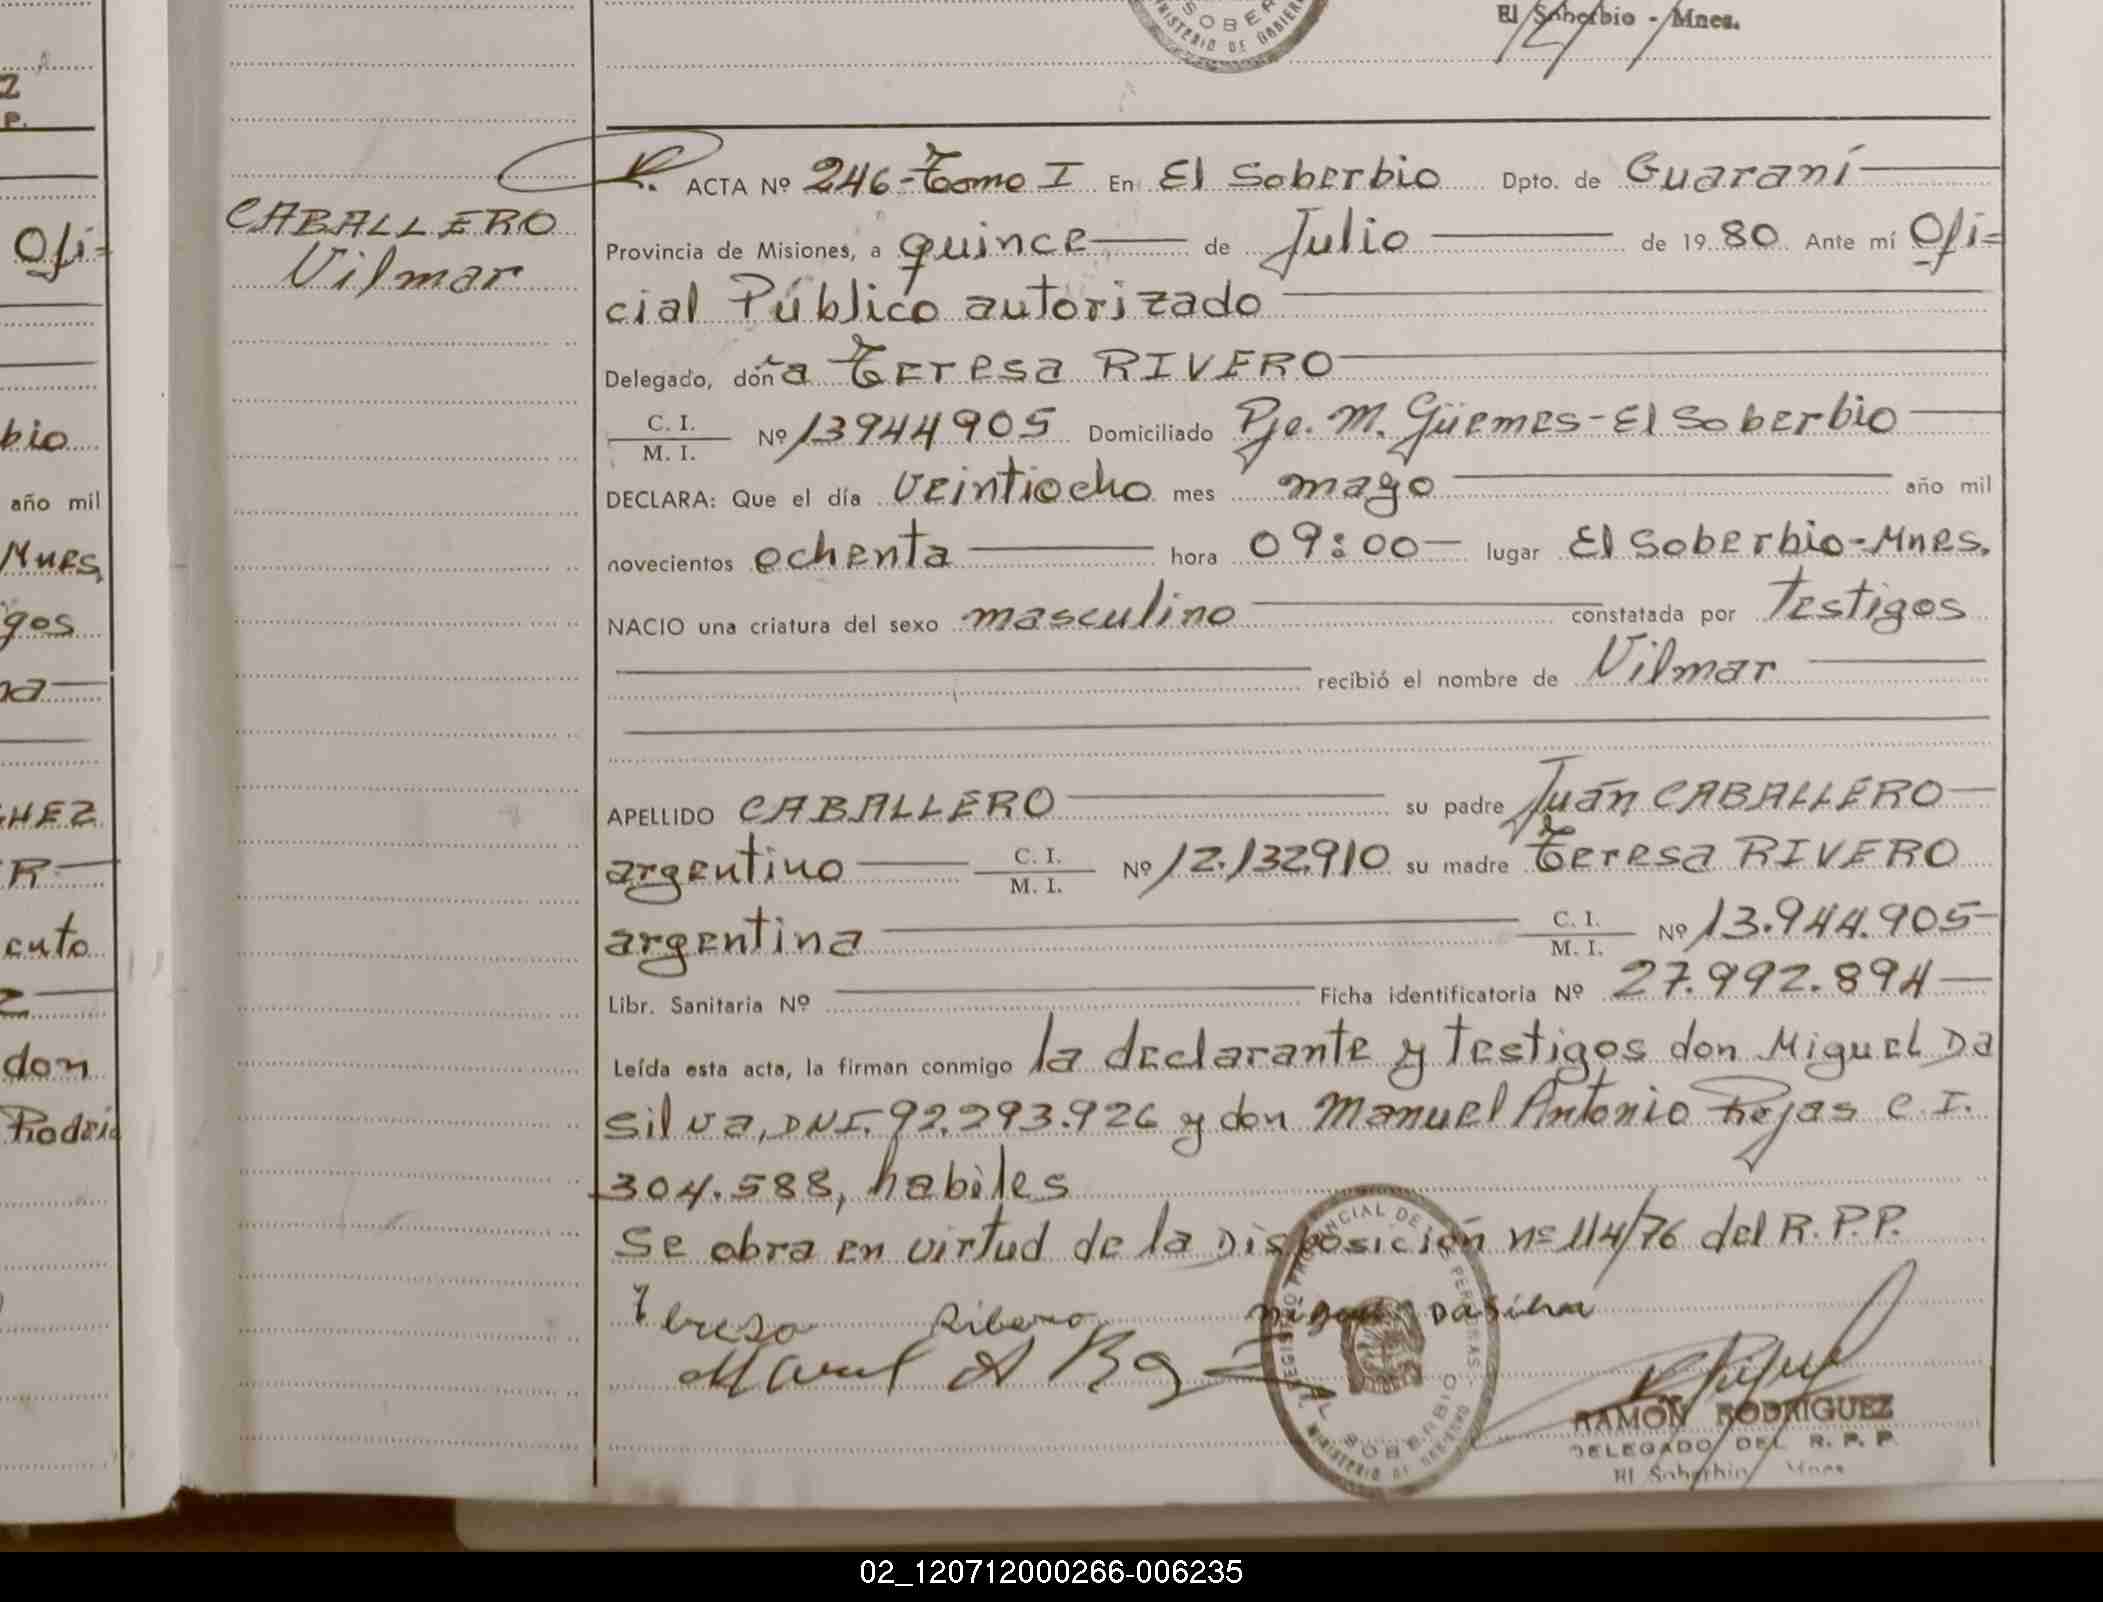 El Soberbio - Mnes.
ACTA Nº 246 - Tomo I En El Soberbio Dpto. de Guaraní
CABALLERO
Vilmar
Provincia de Misiones, a quince de Julio de 1980 Ante mí Ofi=
cial Público autorizado
Delegado, doña Teresa RIVERO
C. I.
M. I. Nº 13944905 Domiciliado Pje. M. Güemes - El Soberbio
DECLARA: Que el día veintiocho mes mayo año mil
novecientos ochenta hora 09:00 lugar El Soberbio - Mnes.
NACIO una criatura del sexo masculino constatada por Testigos
recibió el nombre de Vilmar
APELLIDO CABALLERO su padre Juán CABALLERO
argentino C. I. M. I. Nº 12.132.910 su madre Teresa RIVERO
argentina C. I. M. I. Nº 13.944.905
Libr. Sanitaria Nº Ficha identificatoria Nº 27.992.894
Leída esta acta, la firman conmigo la declarante y testigos don Miguel Da
Silva, DNI. 92.293.926 y don Manuel Antonio Rojas C. I.
304.588, habiles
Se obra en virtud de la Disposición nº 114/76 del R.P.P.
Teresa Ribero Miguel Dasilva
RAMON RODRIGUEZ
DELEGADO DEL R. P. P.
El Soberbio Mnes
02_120712000266-006235